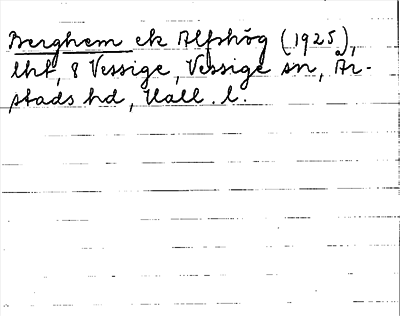 Berghem ek Alfshög (1925),
lht, 8 Vessige, Vessige sn, År-
stads hd, Hall. l.